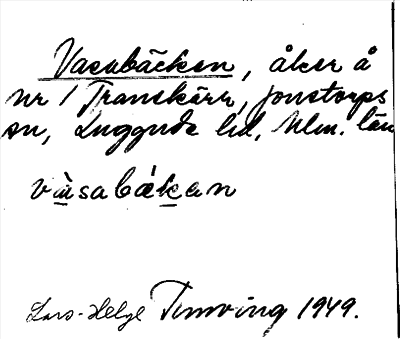 Vasabäcken, åker å
nr 1 Transkärr, Jonstorps
sn, Luggude hd, Mlm. län
vàsabákan
Lars-Helge Timving 1949.